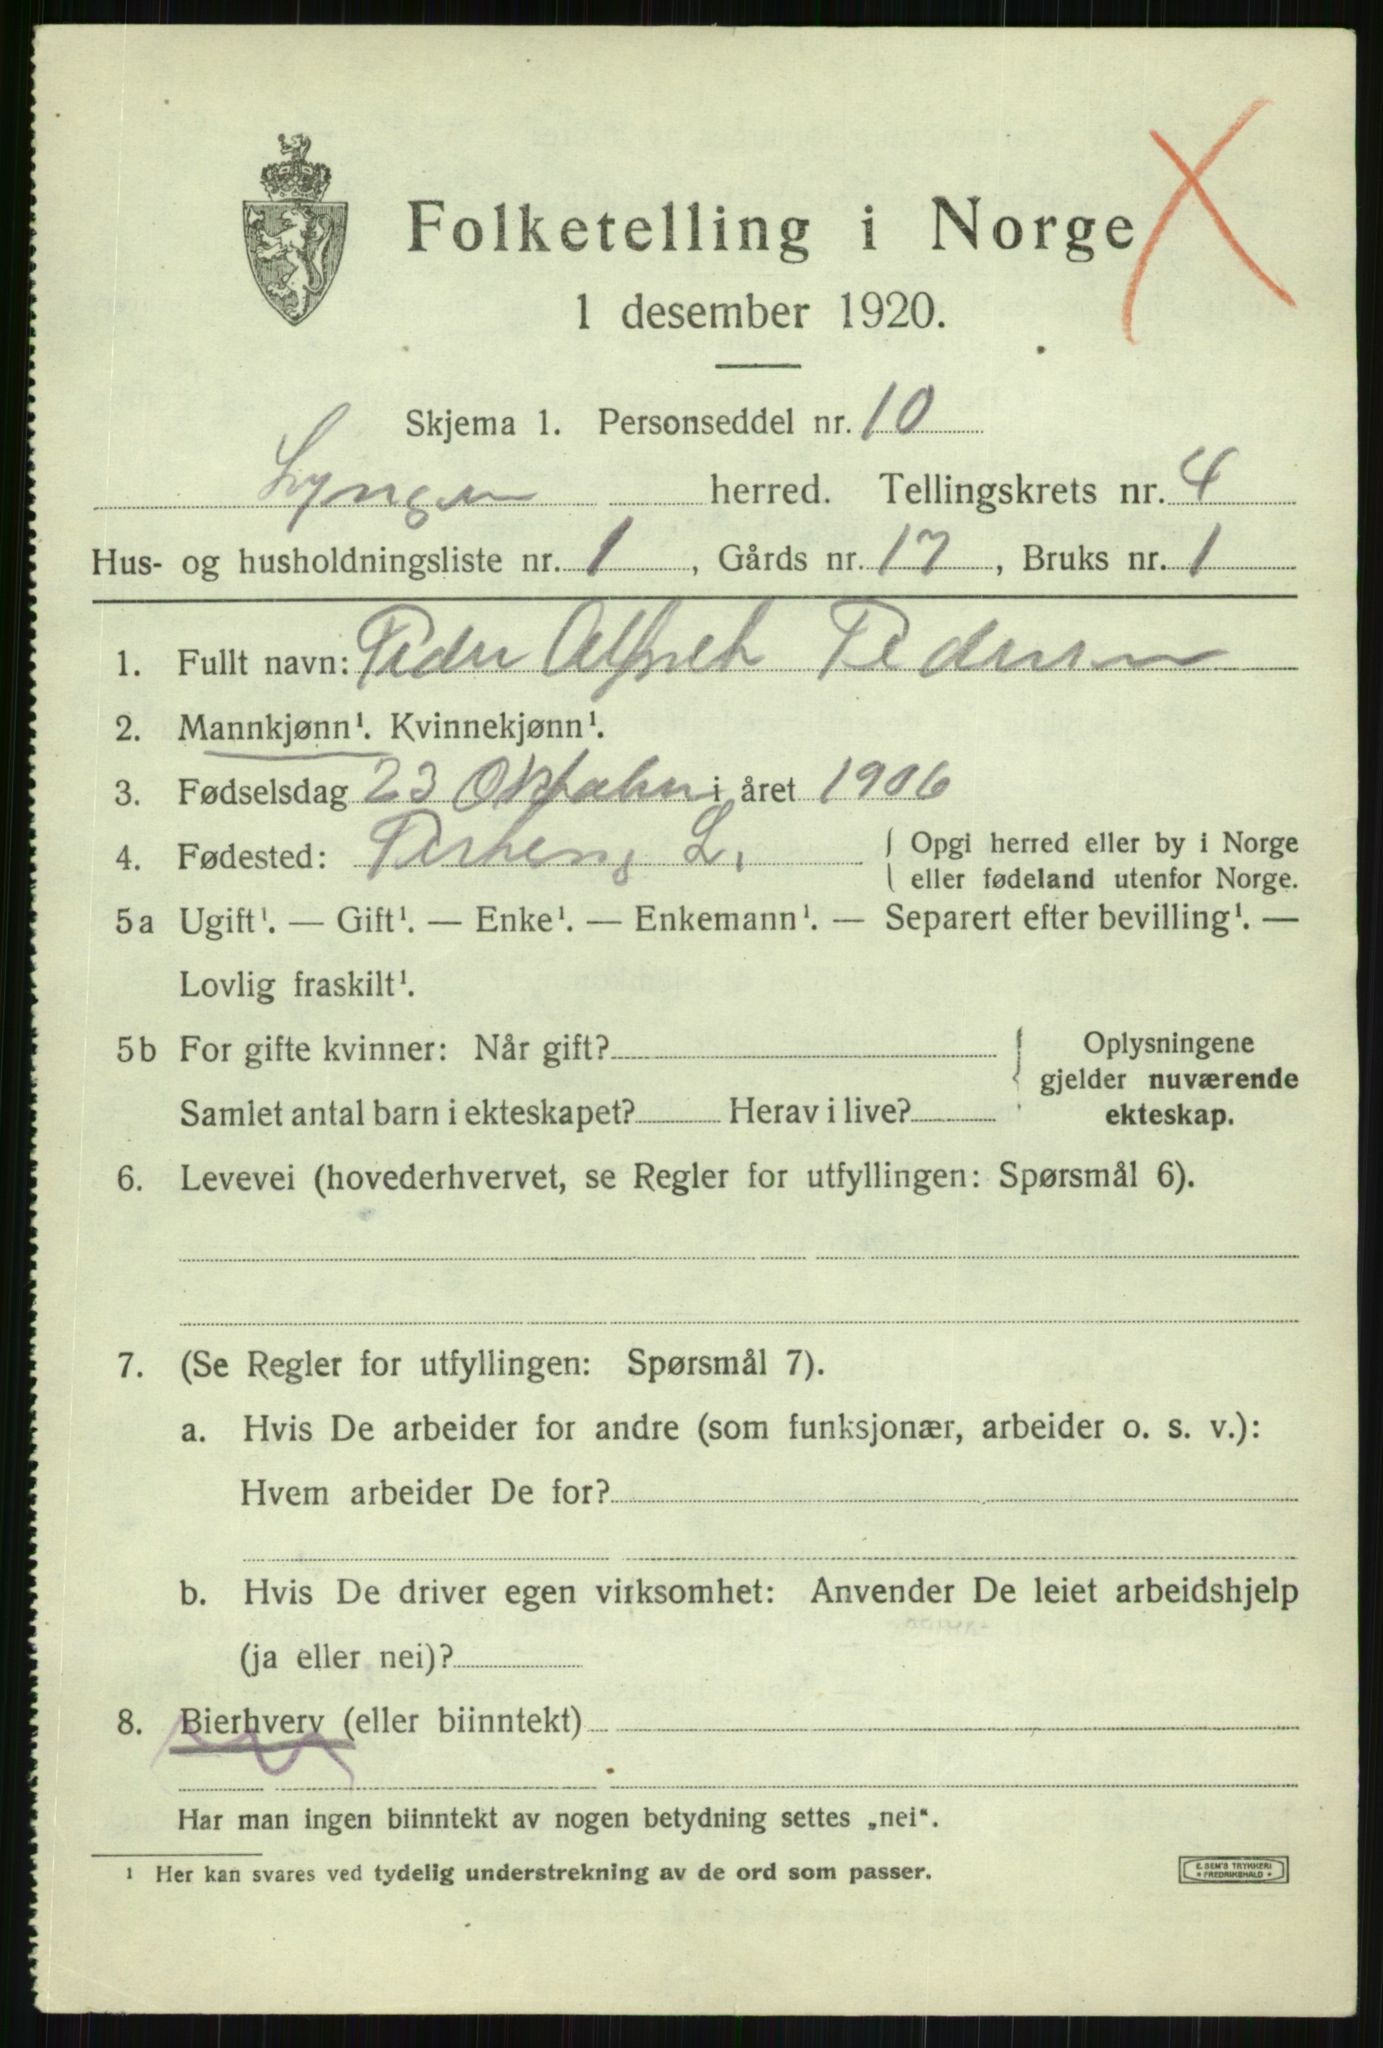 Folketelling i Norge
1 desember 1920.
Skjema 1. Personseddel nr. 10
Lyngen herred. Tellingskrets nr. 4
Hus- og husholdningsliste nr. 1, Gårds nr. 17, Bruks nr. 1
1. Fullt navn: Peder Alfred Pedersen
2. Mannkjønn¹. Kvinnekjønn¹.
3. Fødselsdag 23 Oktober i året 1906
4. Fødested: L. { Opgi herred eller by i Norge
eller fødeland utenfor Norge.
5a Ugift¹. — Gift¹. — Enke¹. — Enkemann¹. — Separert efter bevilling¹. —
Lovlig fraskilt¹.
5b For gifte kvinner: Når gift? { Oplysningene
gjelder nuværende
Samlet antal barn i ekteskapet? Herav i live? ekteskap.
6. Levevei (hovederhvervet, se Regler for utfyllingen: Spørsmål 6).
7. (Se Regler for utfyllingen: Spørsmål 7).
a. Hvis De arbeider for andre (som funksjonær, arbeider o. s. v.):
Hvem arbeider De for?
b. Hvis De driver egen virksomhet: Anvender De leiet arbeidshjelp
(ja eller nei)?
8. Bierhverv (eller biinntekt)
Har man ingen biinntekt av nogen betydning settes „nei“.
¹ Her kan svares ved tydelig understrekning av de ord som passer.
E. SEM'S TRYKKERI
* FREDRIKSHALD *